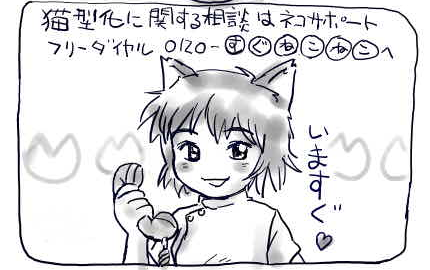 猫型化に関する相談はネコサポート
フリーダイヤル 0120-すぐねこねこへ
いますぐ♡